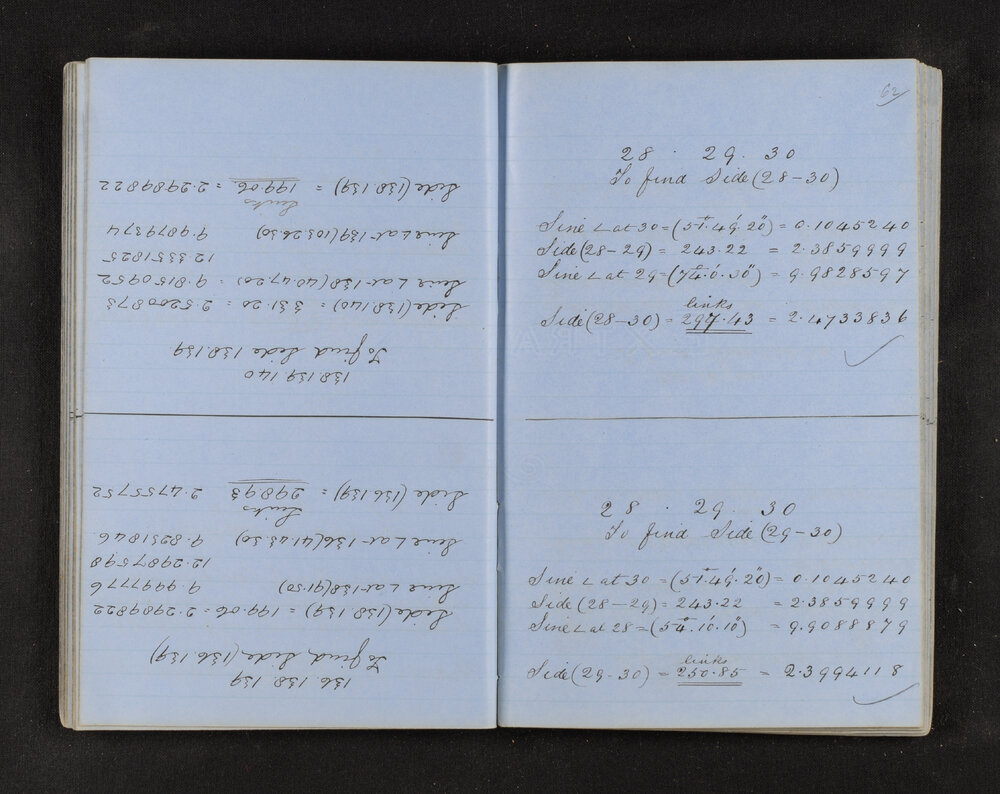 136. 138. 139
To find Side (136.139)
Side (138.139) = 199.06 = 2.2989822
Sine ∠ at 138 (91.50) 9.9997776
12.2987598
Sine ∠ at 136 (41.43.50) 9.8231846
Links
Side (136.139) = 298.93 2.4755752
138.139.140
To find Side 138.139
Side (138.140) = 331.20 = 2.5200873
Sine ∠ at 138 (40.47.20) 9.8150952
12.3351825
Sine ∠ at 139 (103.26.30) 9.9879374
Links
Side (138.139) = 199.06 = 2.2989822
62
28 . 29 . 30
To find Side (28-30)
Sine ∠ at 30 = (51°.49'.20") = 0.1045240
Side (28-29) = 243.22 = 2.3859999
Sine ∠ at 29 = (74°.0'.30") = 9.9828597
links
Side (28-30) = 297.43 = 2.4733836
28 . 29 . 30
To find Side (29-30)
Sine ∠ at 30 = (51°.49'.20") = 0.1045240
Side (28-29) = 243.22 = 2.3859999
Sine ∠ at 28 = (54°.10'.10") = 9.9088879
links
Side (29-30) = 250.85 = 2.3994118